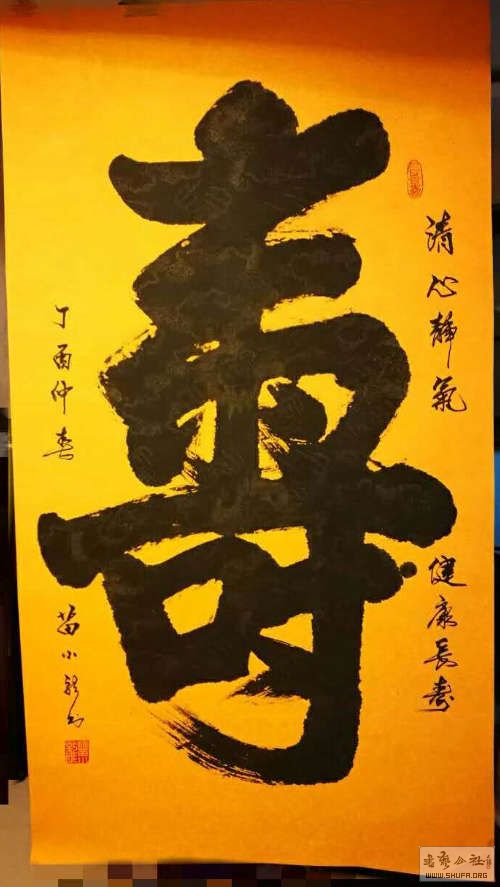 壽
清心靜氣
健康長壽
丁酉仲春
苗小龍书
书艺公社
WWW.SHUFA.ORG